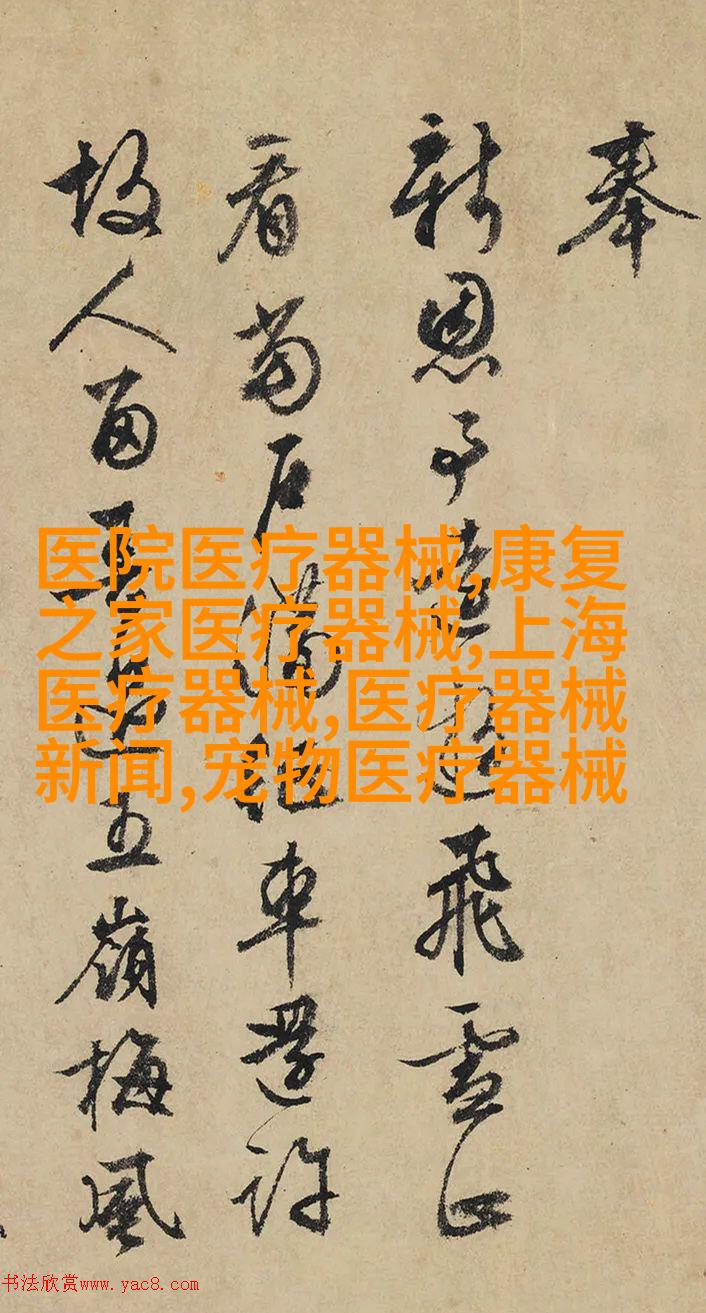 奉
新恩飛雪止
看石滿車還許
故人五嶺梅風
医院医疗器械,康复
之家医疗器械,上海
医疗器械,医疗器械
新闻,宠物医疗器械
书法欣赏www.yac8.com